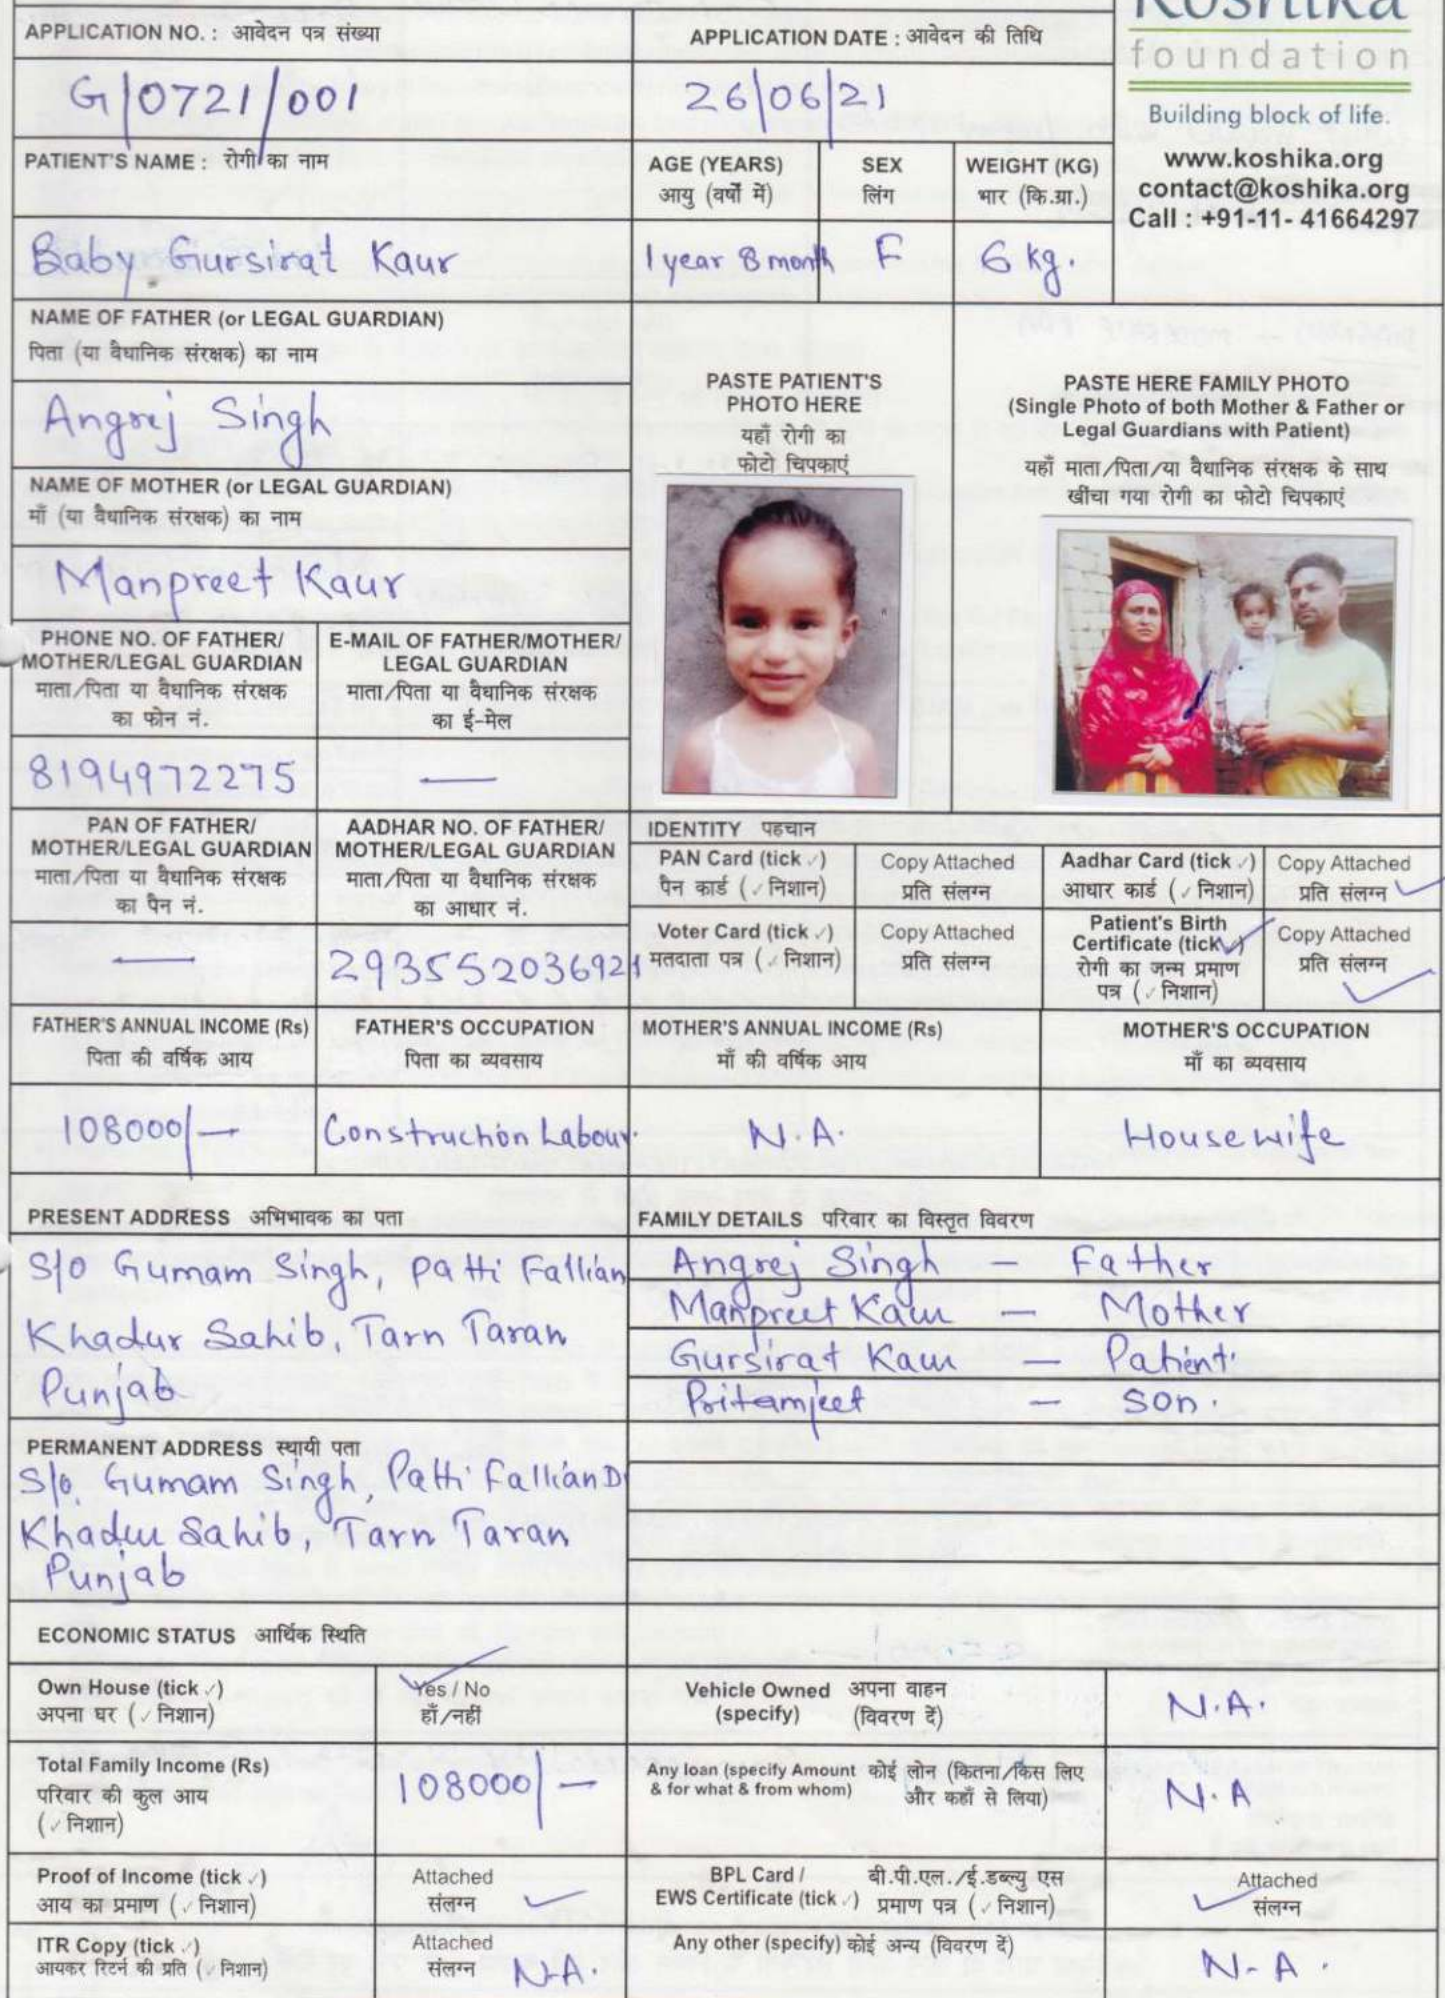 Koshika
foundation
Building block of life.
www.koshika.org
contact@koshika.org
Call : +91-11- 41664297
APPLICATION NO. : आवेदन पत्र संख्या
APPLICATION DATE : आवेदन की तिथि
G/0721/001
26/06/21
PATIENT'S NAME : रोगी का नाम
AGE (YEARS)
आयु (वर्षों में)
SEX
लिंग
WEIGHT (KG)
भार (कि.ग्रा.)
Baby Gursirat Kaur
1 year 8 month
F
6 kg.
NAME OF FATHER (or LEGAL GUARDIAN)
पिता (या वैधानिक संरक्षक) का नाम
Angrej Singh
NAME OF MOTHER (or LEGAL GUARDIAN)
माँ (या वैधानिक संरक्षक) का नाम
Manpreet Kaur
PASTE PATIENT'S
PHOTO HERE
यहाँ रोगी का
फोटो चिपकाएं
PASTE HERE FAMILY PHOTO
(Single Photo of both Mother & Father or
Legal Guardians with Patient)
यहाँ माता/पिता/या वैधानिक संरक्षक के साथ
खींचा गया रोगी का फोटो चिपकाएं
PHONE NO. OF FATHER/
MOTHER/LEGAL GUARDIAN
माता/पिता या वैधानिक संरक्षक
का फोन नं.
E-MAIL OF FATHER/MOTHER/
LEGAL GUARDIAN
माता/पिता या वैधानिक संरक्षक
का ई-मेल
8194972275
—
PAN OF FATHER/
MOTHER/LEGAL GUARDIAN
माता/पिता या वैधानिक संरक्षक
का पैन नं.
AADHAR NO. OF FATHER/
MOTHER/LEGAL GUARDIAN
माता/पिता या वैधानिक संरक्षक
का आधार नं.
—
293552036921
IDENTITY पहचान
PAN Card (tick ✓)
पैन कार्ड (✓ निशान)
Copy Attached
प्रति संलग्न
Aadhar Card (tick ✓)
आधार कार्ड (✓ निशान)
Copy Attached
प्रति संलग्न ✓
Voter Card (tick ✓)
मतदाता पत्र (✓ निशान)
Copy Attached
प्रति संलग्न
Patient's Birth
Certificate (tick ✓)
रोगी का जन्म प्रमाण
पत्र (✓ निशान)
Copy Attached
प्रति संलग्न ✓
FATHER'S ANNUAL INCOME (Rs)
पिता की वर्षिक आय
FATHER'S OCCUPATION
पिता का व्यवसाय
MOTHER'S ANNUAL INCOME (Rs)
माँ की वर्षिक आय
MOTHER'S OCCUPATION
माँ का व्यवसाय
108000/-
Construction Labour.
N.A.
Housewife
PRESENT ADDRESS अभिभावक का पता
S/o Gumam Singh, Patti Fallian
Khadur Sahib, Tarn Taran
Punjab
FAMILY DETAILS परिवार का विस्तृत विवरण
Angrej Singh — Father
Manpreet Kaur — Mother
Gursirat Kaur — Patient
Pritamjeet — Son.
PERMANENT ADDRESS स्थायी पता
S/o. Gumam Singh, Patti Fallian D
Khadur Sahib, Tarn Taran
Punjab
ECONOMIC STATUS आर्थिक स्थिति
Own House (tick ✓)
अपना घर (✓ निशान)
Yes / No
हाँ/नहीं
Vehicle Owned अपना वाहन
(specify) (विवरण दें)
N.A.
Total Family Income (Rs)
परिवार की कुल आय
(✓ निशान)
108000/-
Any loan (specify Amount कोई लोन (कितना/किस लिए
& for what & from whom) और कहाँ से लिया)
N.A
Proof of Income (tick ✓)
आय का प्रमाण (✓ निशान)
Attached
संलग्न ✓
BPL Card / बी.पी.एल./ई.डब्ल्यु एस
EWS Certificate (tick ✓) प्रमाण पत्र (✓ निशान)
Attached
✓ संलग्न
ITR Copy (tick ✓)
आयकर रिटर्न की प्रति (✓ निशान)
Attached
संलग्न N.A.
Any other (specify) कोई अन्य (विवरण दें)
N-A.